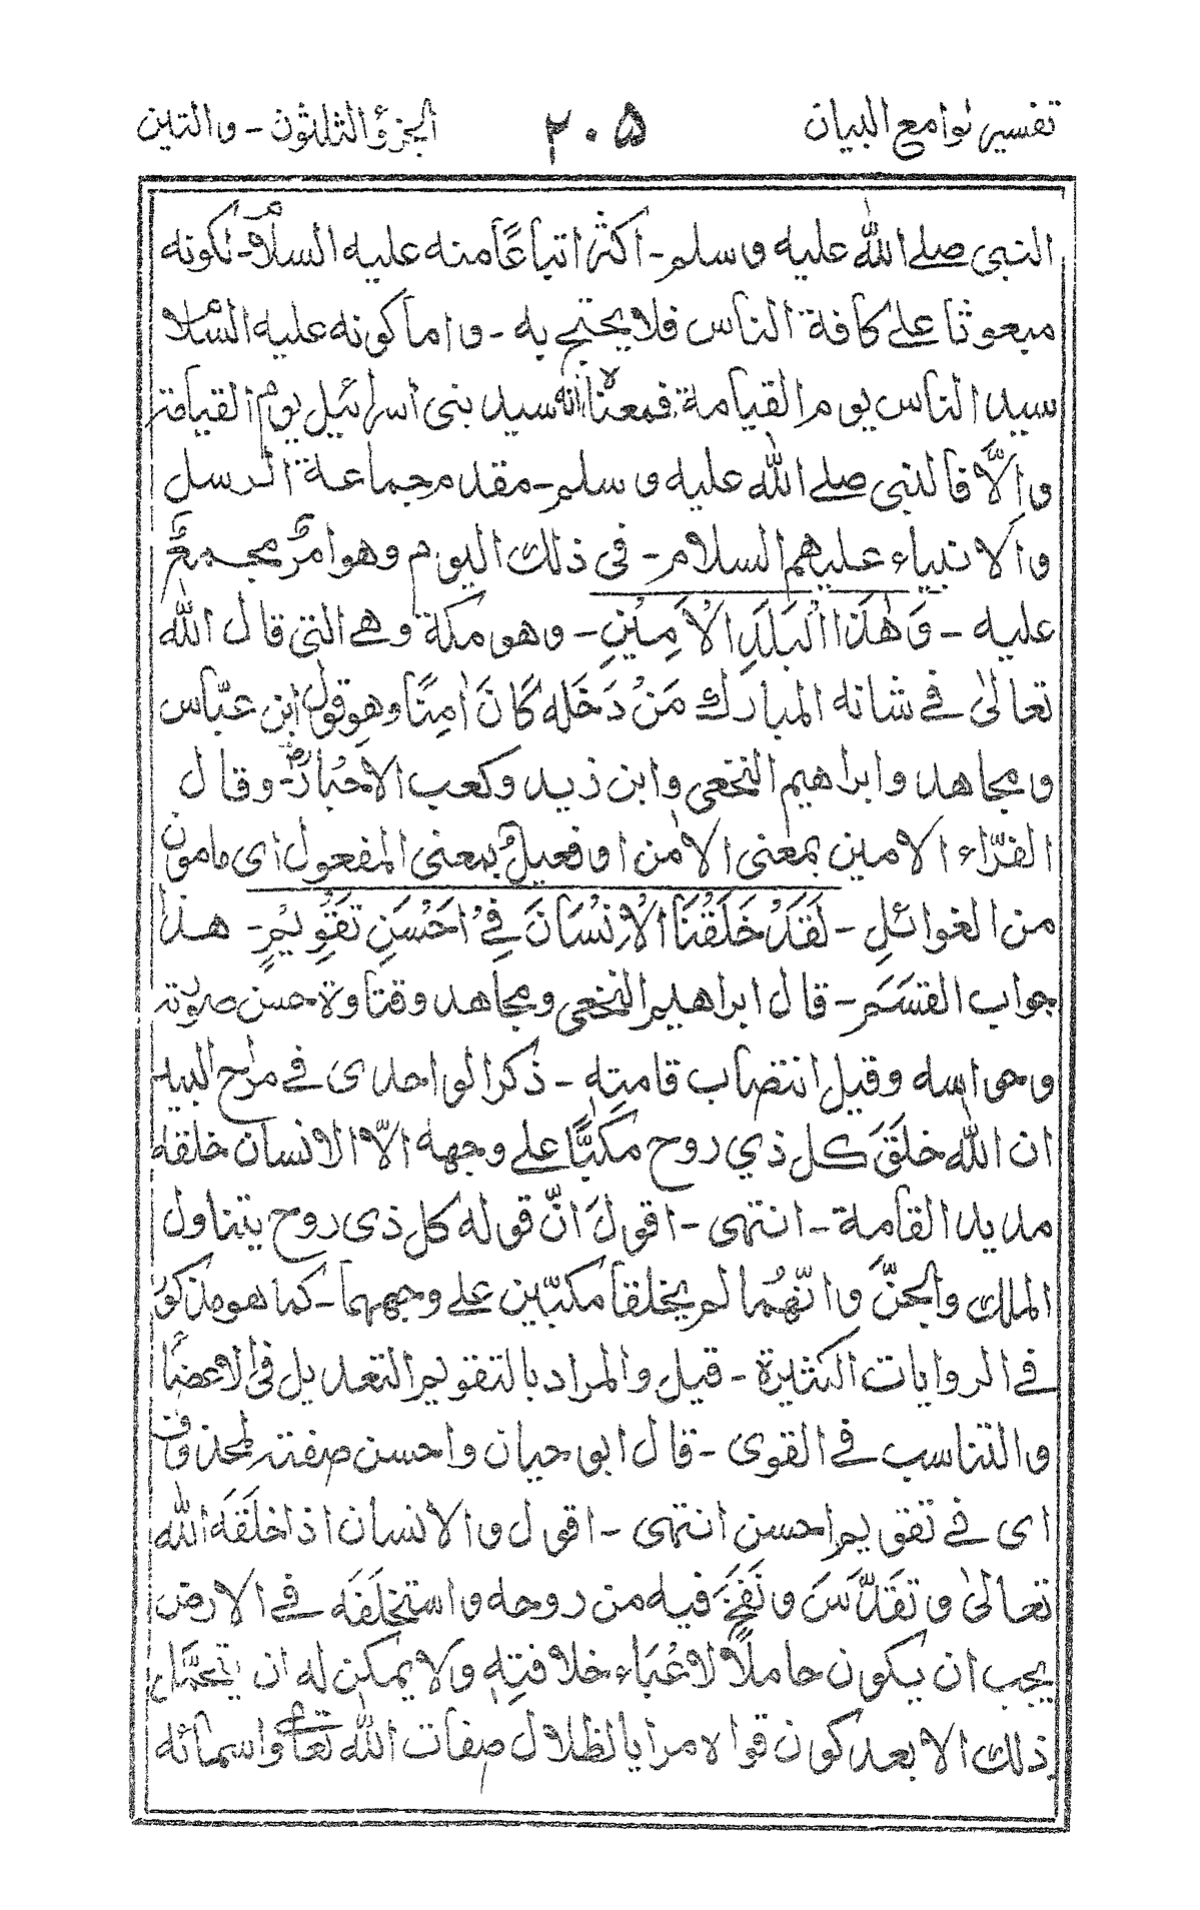 تفسير لوامع البيان
٢٠٥
الجزء الثلثون - والتين
النبي صلے الله عليه وسلم - اكثر اتباعًا منه عليه السلام - لكونه
مبعوثا علے كافة الناس فلا يحتج به - واما كونه عليه السلام
سيد الناس يوم القيامة فمعناه انه سيد بنى اسرائيل يوم القيامة
والّا فالنبى صلے الله عليه وسلم - مقدم جماعة الرسل
والانبياء عليهم السلام - فى ذلك اليوم وهو امرٌ مجمعٌ
عليه - وَهٰذَا الْبَلَدِ الْاَمِيْنِ - وهو مكة وهے التى قال الله
تعالىٰ فے شانه المبارك مَنْ دَخَلَه كَانَ اٰمِنًا وهو قول ابن عبّاس
ومجاهد وابراهيم النخعى وابن زيد وكعب الاحبارؓ - وقال
الفرّاء الامين بمعنى الاٰمن او فعيلٌ بمعنى المفعول اى مامون
من الغوائل - لَقَدْ خَلَقْنَا الْاِنْسَانَ فِےْ اَحْسَنِ تَقْوِيْمٍ - هذا
جواب القسَم - قال ابراهيم النخعى ومجاهد وقتاوة حسن صورته
وحواسه وقيل انتصاب قامته - ذكر الواحدى فے مراح البيد
ان الله خلَقَ كل ذي روح مكبًّا علے وجهه الاّ الانسان خلقه
مديد القامة - انتهى - اقول انّ قوله كل ذى روح يتناول
الملك والجنّ وانّهُما لم يخلقا مكبّين علے وجههما - كما هو مذكور
فے الروايات الكثيرة - قيل والمراد بالتقويم التعديل فى الاعضاء
والتناسب فے القوى - قال ابو حيان واحسن صفته لمحذوف
اى فے تقويم احسن انتهى - اقول والانسان اذا خلَقَه الله
تعالىٰ وتقدّسَ ونَفَخَ فيه من روحه واستخلَفَه فے الارض
يجب ان يكون حاملًا لاعْبَاء خلافتِهٖ ولا يمكن له ان يتحمّل
ذلك الا بعد كون قواه مرايا لظلال صفات الله تعالى واسمائه